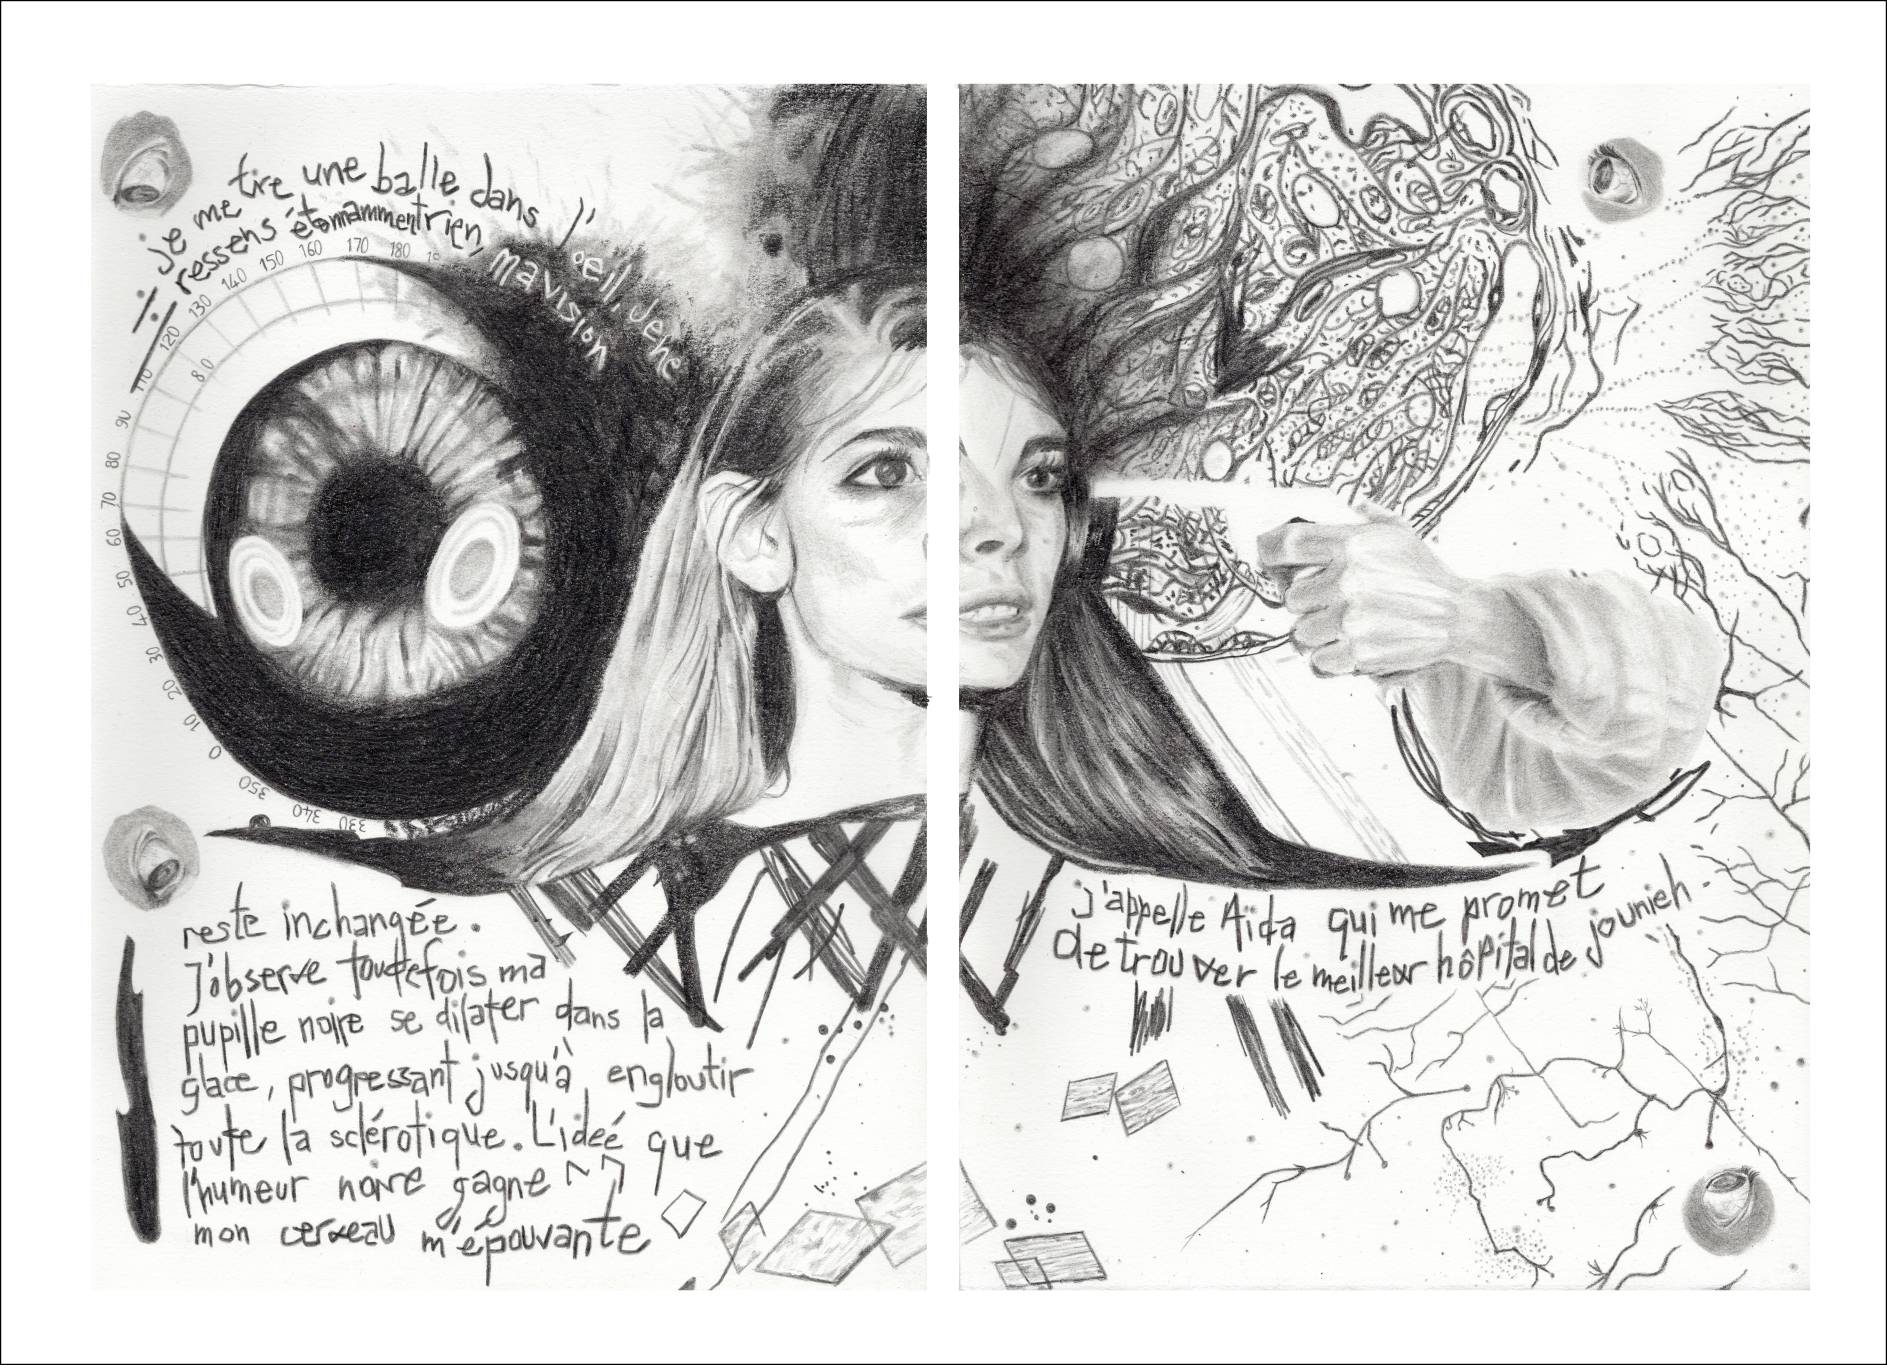 je me tire une balle dans l'œil, je ne
ressens étonnamment rien, ma vision
80
330 340 350 0 10 20 30 40 50 60 70 80 90 110 120 130 140 150 160 170 180
reste inchangée.
J'observe toutefois ma
pupille noire se dilater dans la
glace, progressant jusqu'à engloutir
toute la sclérotique. L'ideé que
l'humeur noire gagne
mon cerveau m'épouvante
j'appelle Aïda qui me promet
de trouver le meilleur hôpital de jounieh.